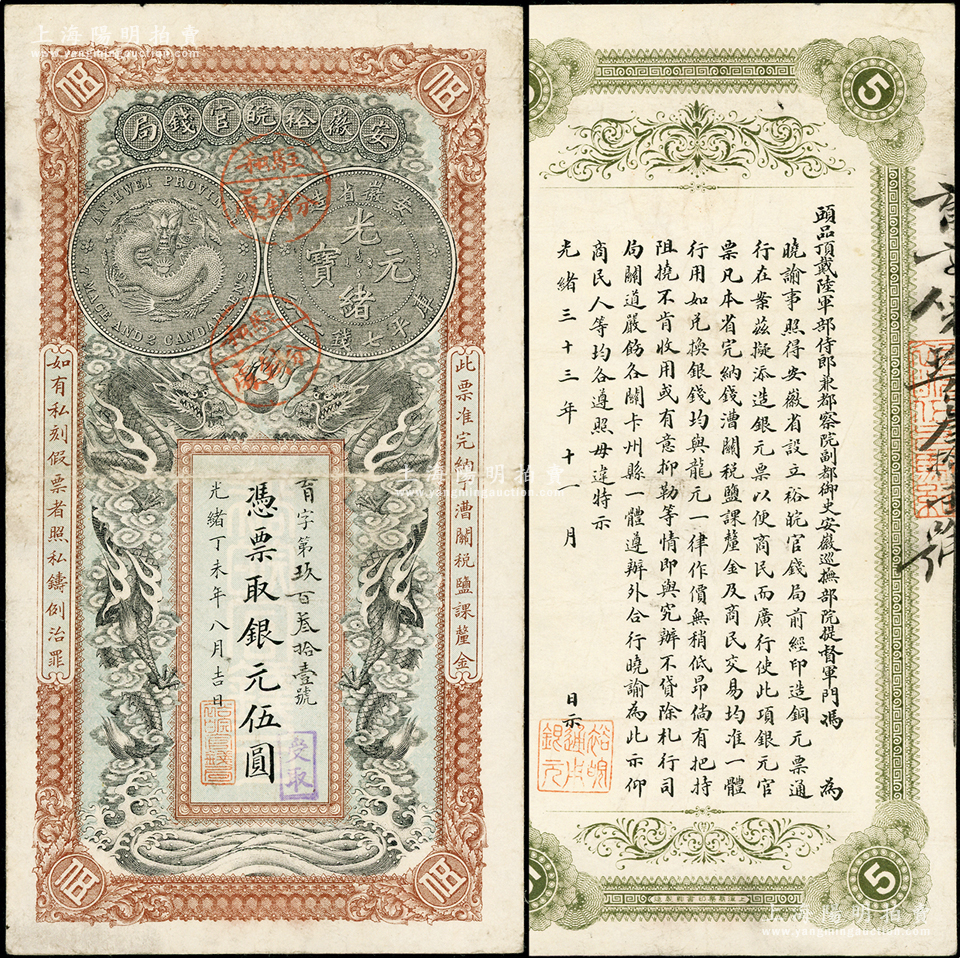 上海陽明拍賣
www.yangmingauction.com
伍
伍
安徽裕皖官錢局
AN-HWEI PROVINCE
7 MACE AND 2 CANDAREENS
安徽省造
光緒元寶
庫平七錢
此票准完納丁漕關稅鹽課釐金
如有私刻假票者照私鑄例治罪
育字第玖百叁拾壹號
憑票取銀元伍圓
光緒丁未年八月吉日
受取
伍
伍
5
5
頭品頂戴陸軍部侍郎兼都察院副都御史安徽巡撫部院提督軍門馮 為
曉諭事照得安徽省設立裕皖官錢局前經印造銅元票通
行在案茲擬添造銀元票以便商民而廣行使此項銀元官
票凡本省完納錢漕關稅鹽課釐金及商民交易均准一體
行用如兌換銀錢均與龍元一律作價無稍低昂倘有把持
阻撓不肯收用或有意抑勒等情即與究辦不貸除札行司
局關道嚴飭各關卡州縣一體遵辦外合行曉諭為此示仰
商民人等均各遵照毋違特示
光緒三十三年十一月 日示
裕皖通用銀元
上海陽明拍賣
www.yangmingauction.com
上海陽明拍賣
www.yangmingauction.com